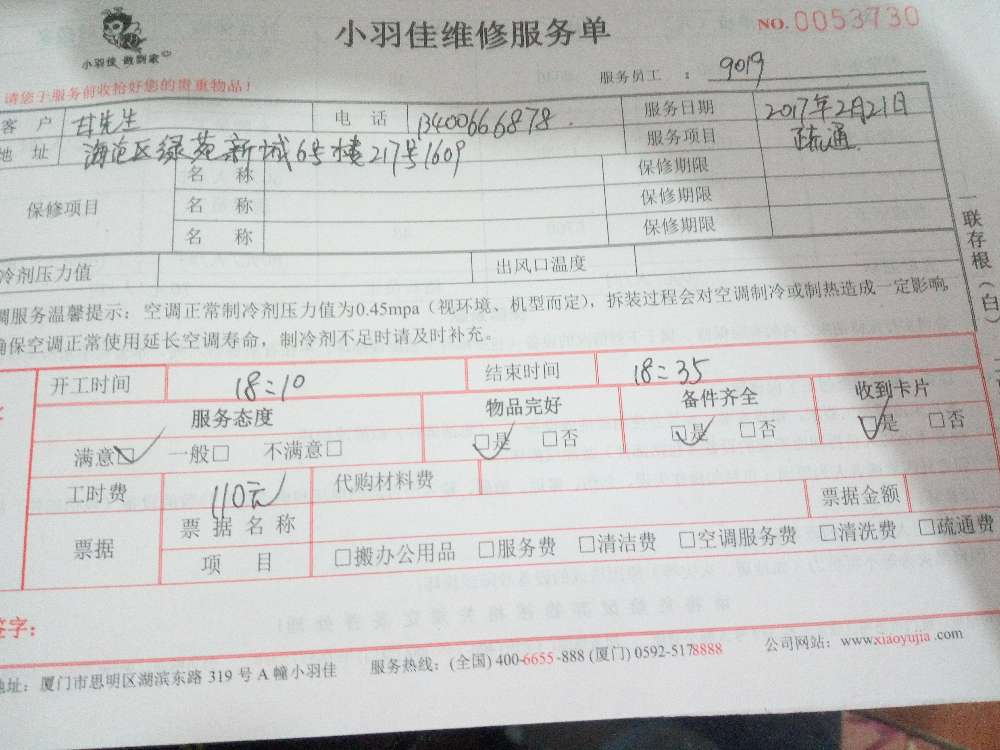 小羽佳 做到家
小羽佳维修服务单
NO.0053730
请您于服务前收拾好您的贵重物品!
服务员工 : 9019
客 户 甘先生 电 话 13400666878 服务日期 2017年2月21日
地 址 海沧区绿苑新城6号楼217号1609 服务项目 疏通
保修项目 名 称 保修期限
名 称 保修期限
名 称 保修期限
冷剂压力值 出风口温度
调服务温馨提示: 空调正常制冷剂压力值为0.45mpa(视环境、机型而定), 拆装过程会对空调制冷或制热造成一定影响,
确保空调正常使用延长空调寿命, 制冷剂不足时请及时补充。
一联存根(白)
开工时间 18:10 结束时间 18:35
服务态度 物品完好 备件齐全 收到卡片
满意□ 一般□ 不满意□ □是 □否 □是 □否 □是 □否
工时费 110元 代购材料费
票据 票 据 名 称 票据金额
项 目 □搬办公用品 □服务费 □清洁费 □空调服务费 □清洗费 □疏通费
签字:
地址: 厦门市思明区湖滨东路 319 号 A 幢小羽佳 服务热线: (全国) 400-6655-888 (厦门) 0592-5178888 公司网站: www.xiaoyujia.com